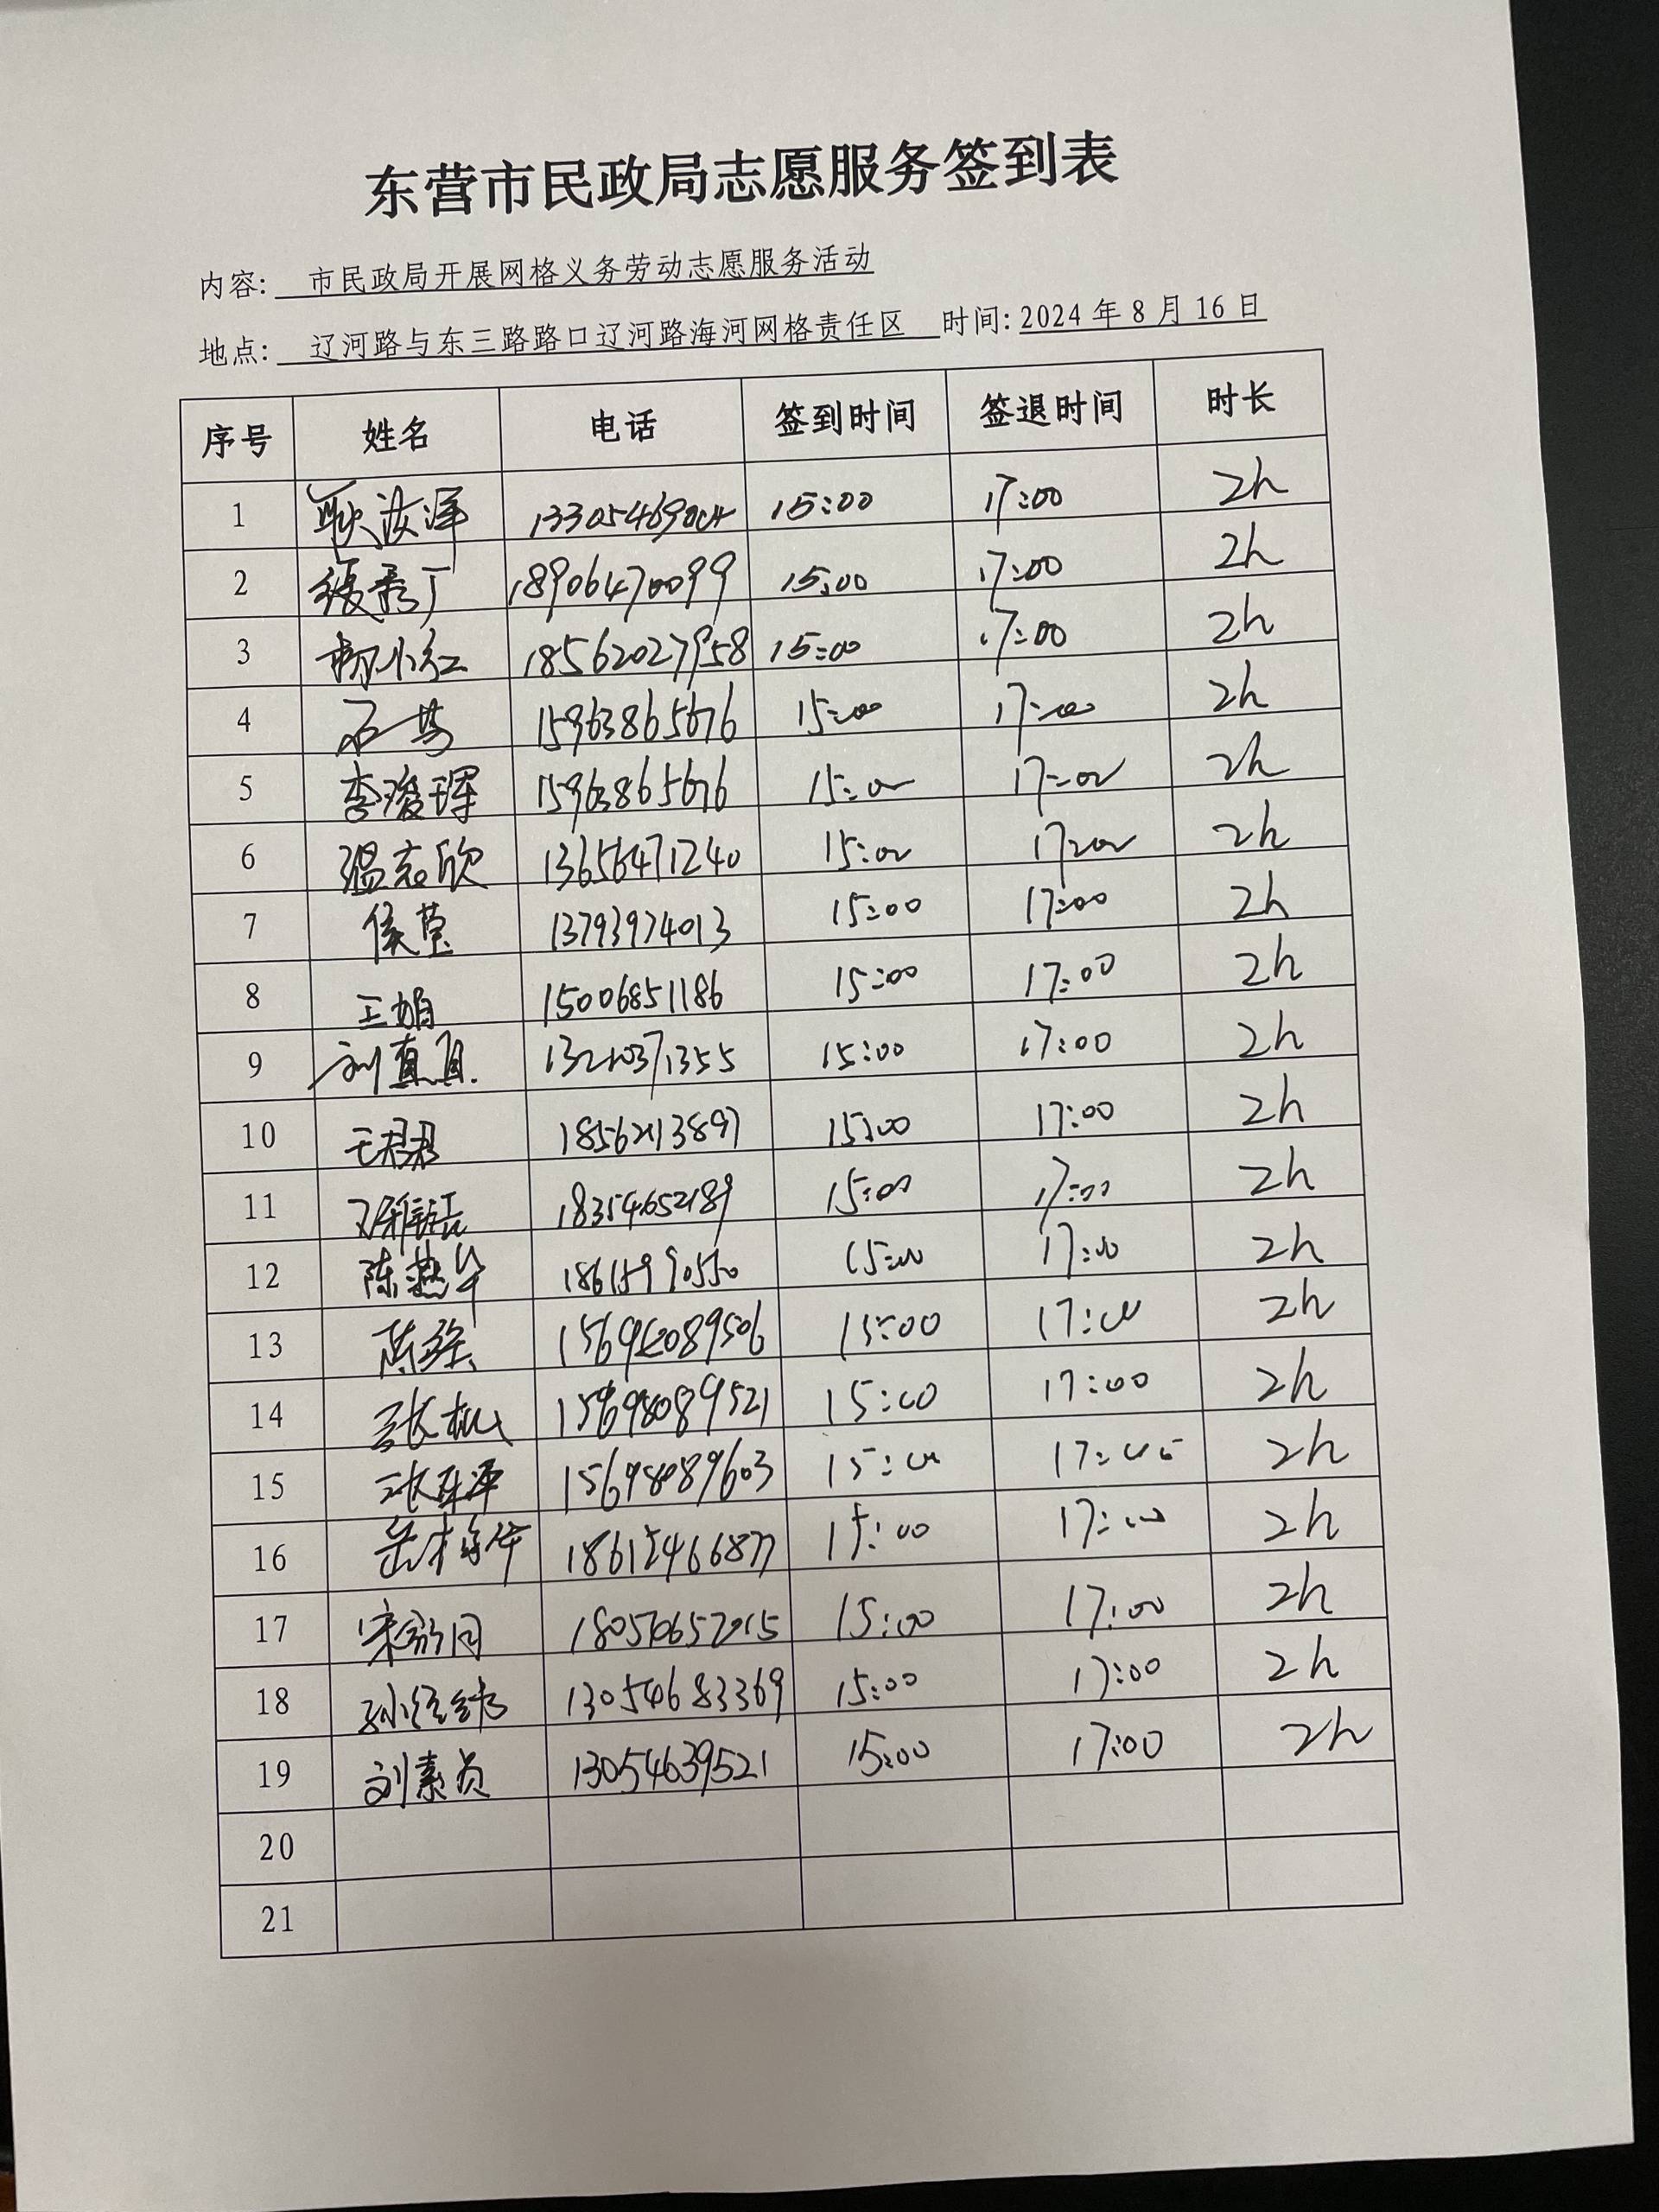 东营市民政局志愿服务签到表
内容: 市民政局开展网格义务劳动志愿服务活动
地点: 辽河路与东三路路口辽河路海河网格责任区 时间: 2024 年 8 月 16 日
序号 姓名 电话 签到时间 签退时间 时长
1 15:00 17:00 2h
2 18906470099 15:00 17:00 2h
3 杨小红 18562027958 15:00 17:00 2h
4 15963865676 15:00 17:00 2h
5 李浚珲 15963865676 15:00 17:00 2h
6 温志欣 13656471240 15:00 17:00 2h
7 侯莹 13793974013 15:00 17:00 2h
8 王娟 15006851186 15:00 17:00 2h
9 刘真真 13210371355 15:00 17:00 2h
10 王君君 18562113897 15:00 17:00 2h
11 18354652189 15:00 17:00 2h
12 陈燕华 18615990550 15:00 17:00 2h
13 15:00 17:00 2h
14 15698089521 15:00 17:00 2h
15 15698089603 15:00 17:00 2h
16 15:00 17:00 2h
17 15:00 17:00 2h
18 孙经纬 13054683369 15:00 17:00 2h
19 刘素贞 13054639521 15:00 17:00 2h
20
21